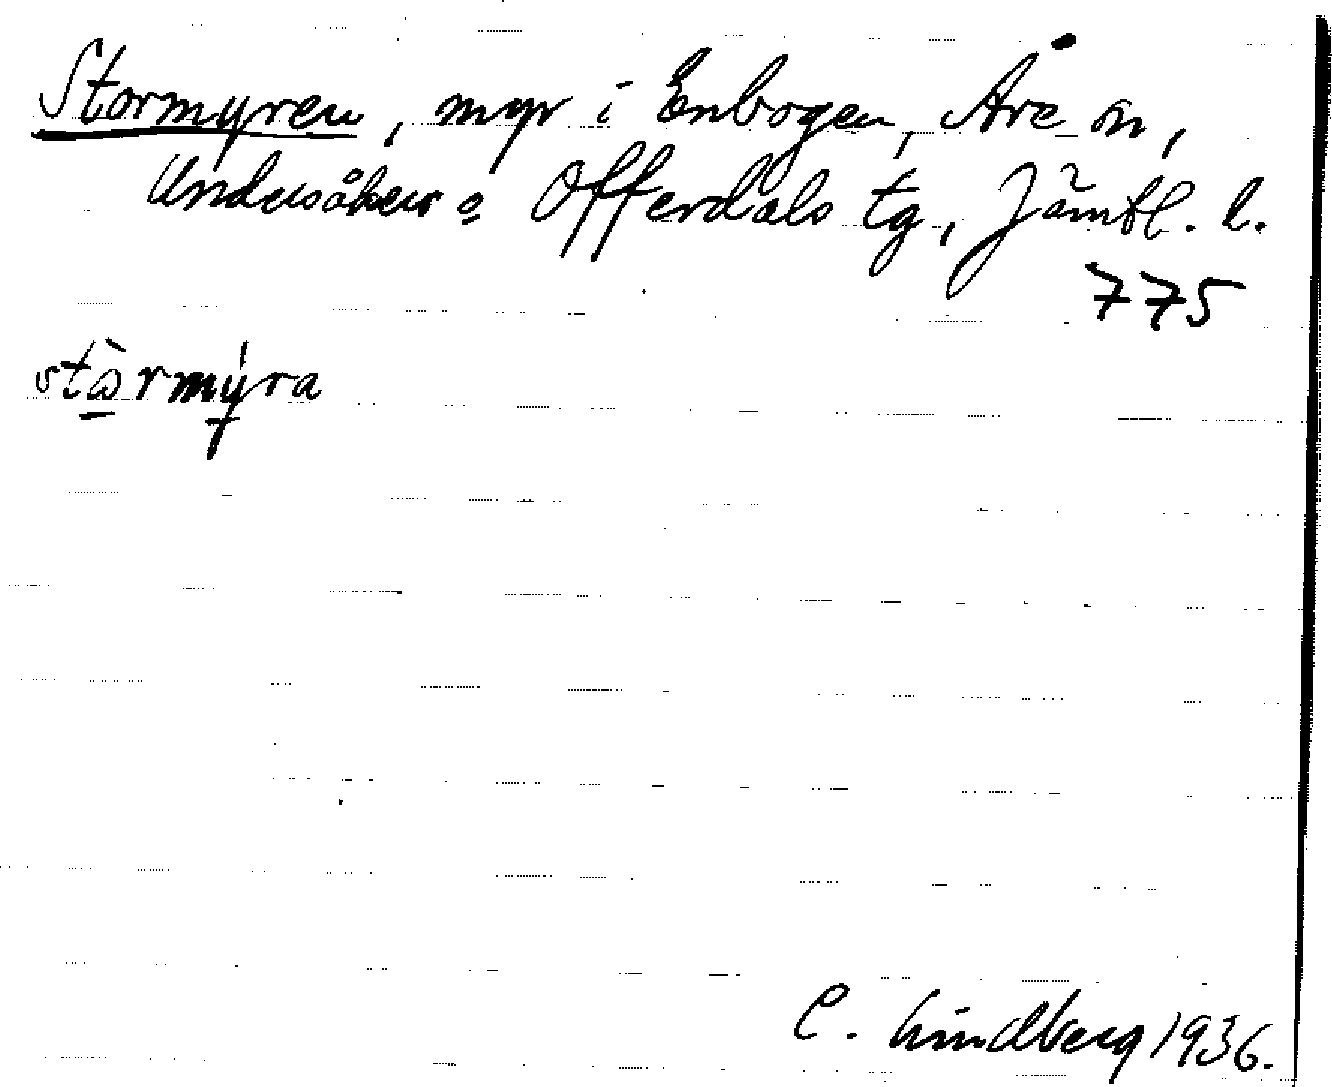 Stormyren, myr i Enbogen, Åre sn,
Undersåkers o Offerdals tg, Jämtl. l.
775
stò̱rmý̱ra
C. Lindberg 1936.